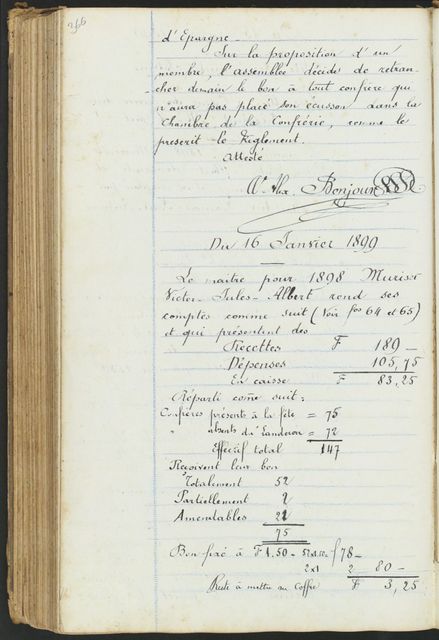 266
d'Epargne
Sur la proposition d'un
membre, l'assemblée décide de retran-
cher demain le bon à tout confrère qui
n'aura pas placé son écusson dans la
Chambre de la Confrérie, comme le
prescrit le Règlement.
Atteste
Alex. Bonjour
Du 16 Janvier 1899
Le maître pour 1898 Muriset
Victor-Jules-Albert rend ses
comptes comme suit (Voir fos 64 et 65)
et qui présentent des
Recettes F 189 —
Dépenses 105,75
En caisse F 83,25
Réparti come suit:
Confrères présents à la fête = 75
" absents du Landeron = 72
Effectif total 147
Reçoivent leur bon
Totalement 52
Partiellement 2
Amendables 21
75
Bon fixé à F 1.50 — 78 —
2x1 2 80 —
Reste à mettre au coffre F 3,25